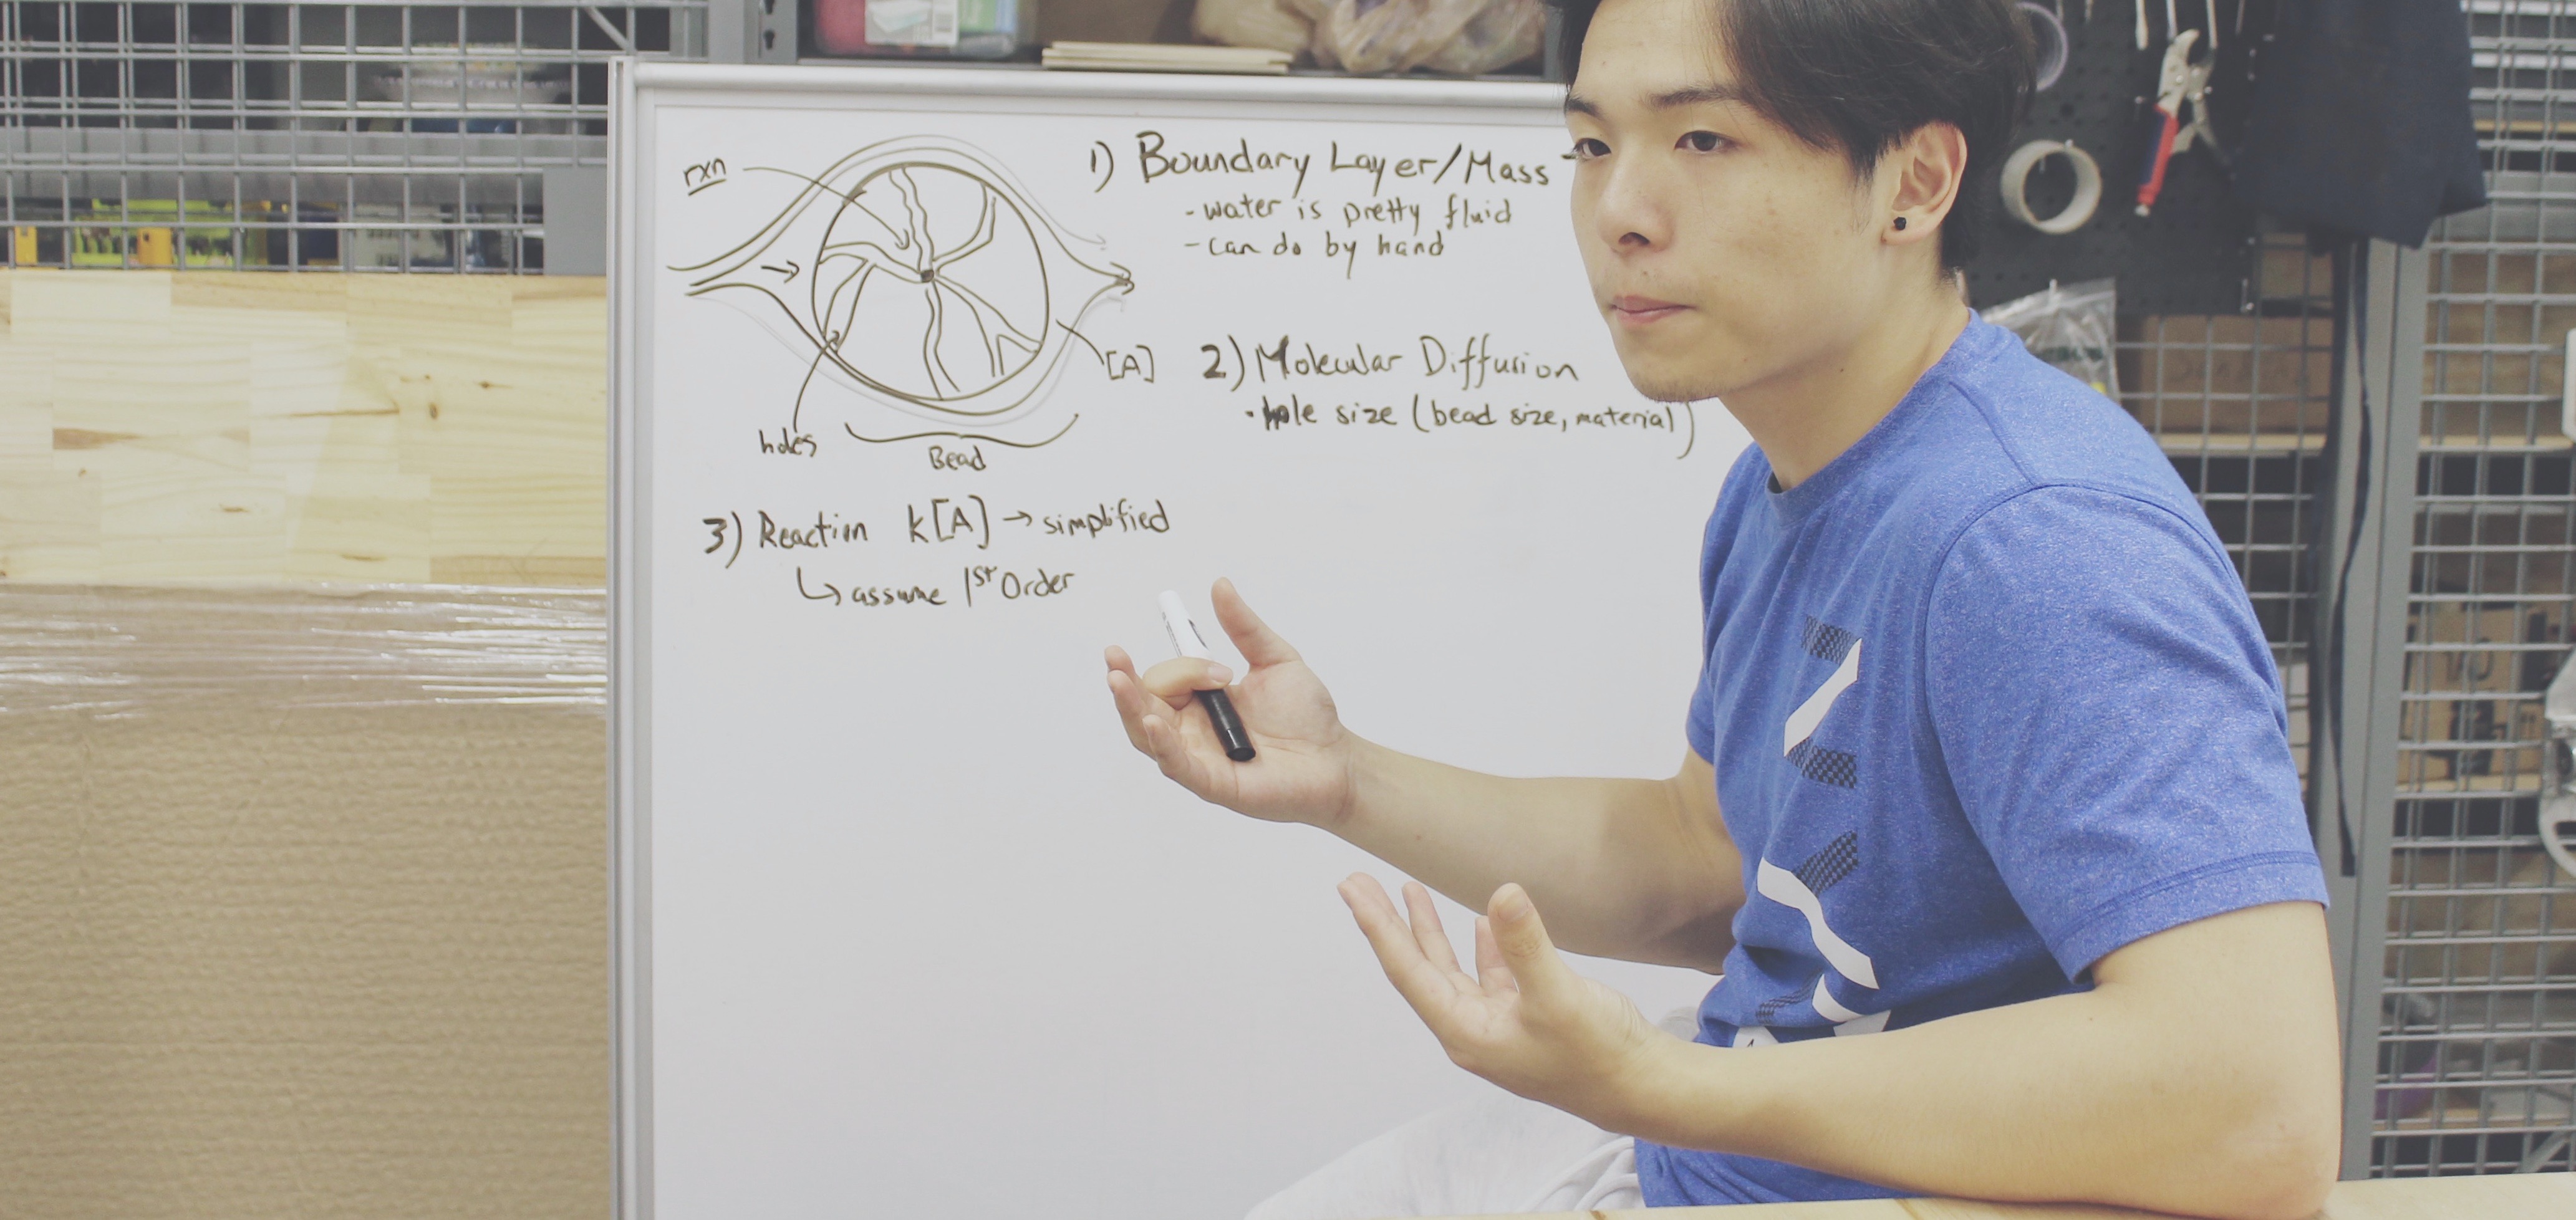 rxn
[A]
holes
Bead
1) Boundary Layer/Mass
- water is pretty fluid
- can do by hand
2) Molecular Diffusion
· hole size (bead size, material)
3) Reaction k[A] → simplified
↳ assume 1st Order